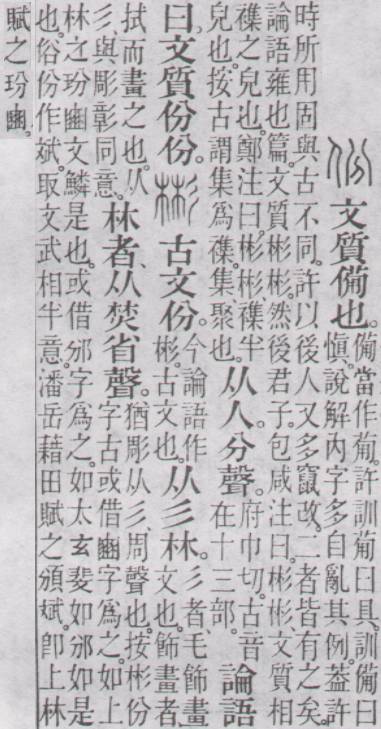 份 文質備也。
備當作葡。許訓葡曰具。訓備曰
愼。說解內字多自亂其例。葢許
時所用固與古不同。許以後人又多竄改。二者皆有之矣。
論語雍也篇。文質彬彬。然後君子。包咸注曰。彬彬、文質相
襍之皃也。鄭注曰。彬彬、襍半
皃也。按古謂集爲襍。集、聚也。
从人。分聲。
府巾切。古音
在十三部。
論語
曰。文質份份。
彬 古文份。
今論語作
彬。古文也。
从彡林。
彡者毛飾畫
文也。飾畫者
拭而畫之也。从
彡、與彫彰同意。
林者、从焚省聲。
猶彫从彡、周聲也。按彬份
字古或借豳字爲之。如上
林之玢豳文鱗是也。或借邠字爲之。如太玄斐如邠如是
也。俗份作斌。取文武相半意。潘岳藉田賦之頒斌。卽上林
賦之玢豳。